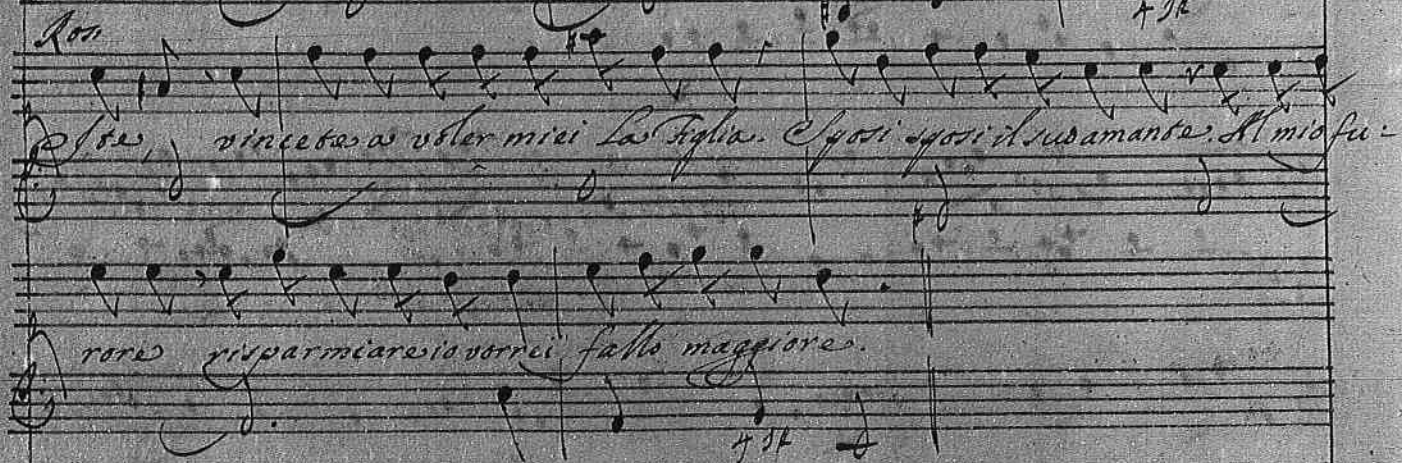 Ros.
Ite, vincete a voler miei La Figlia. Sposi sposi il suo amante. Al mio fu=
rore risparmiare io vorrei fallo maggiore.